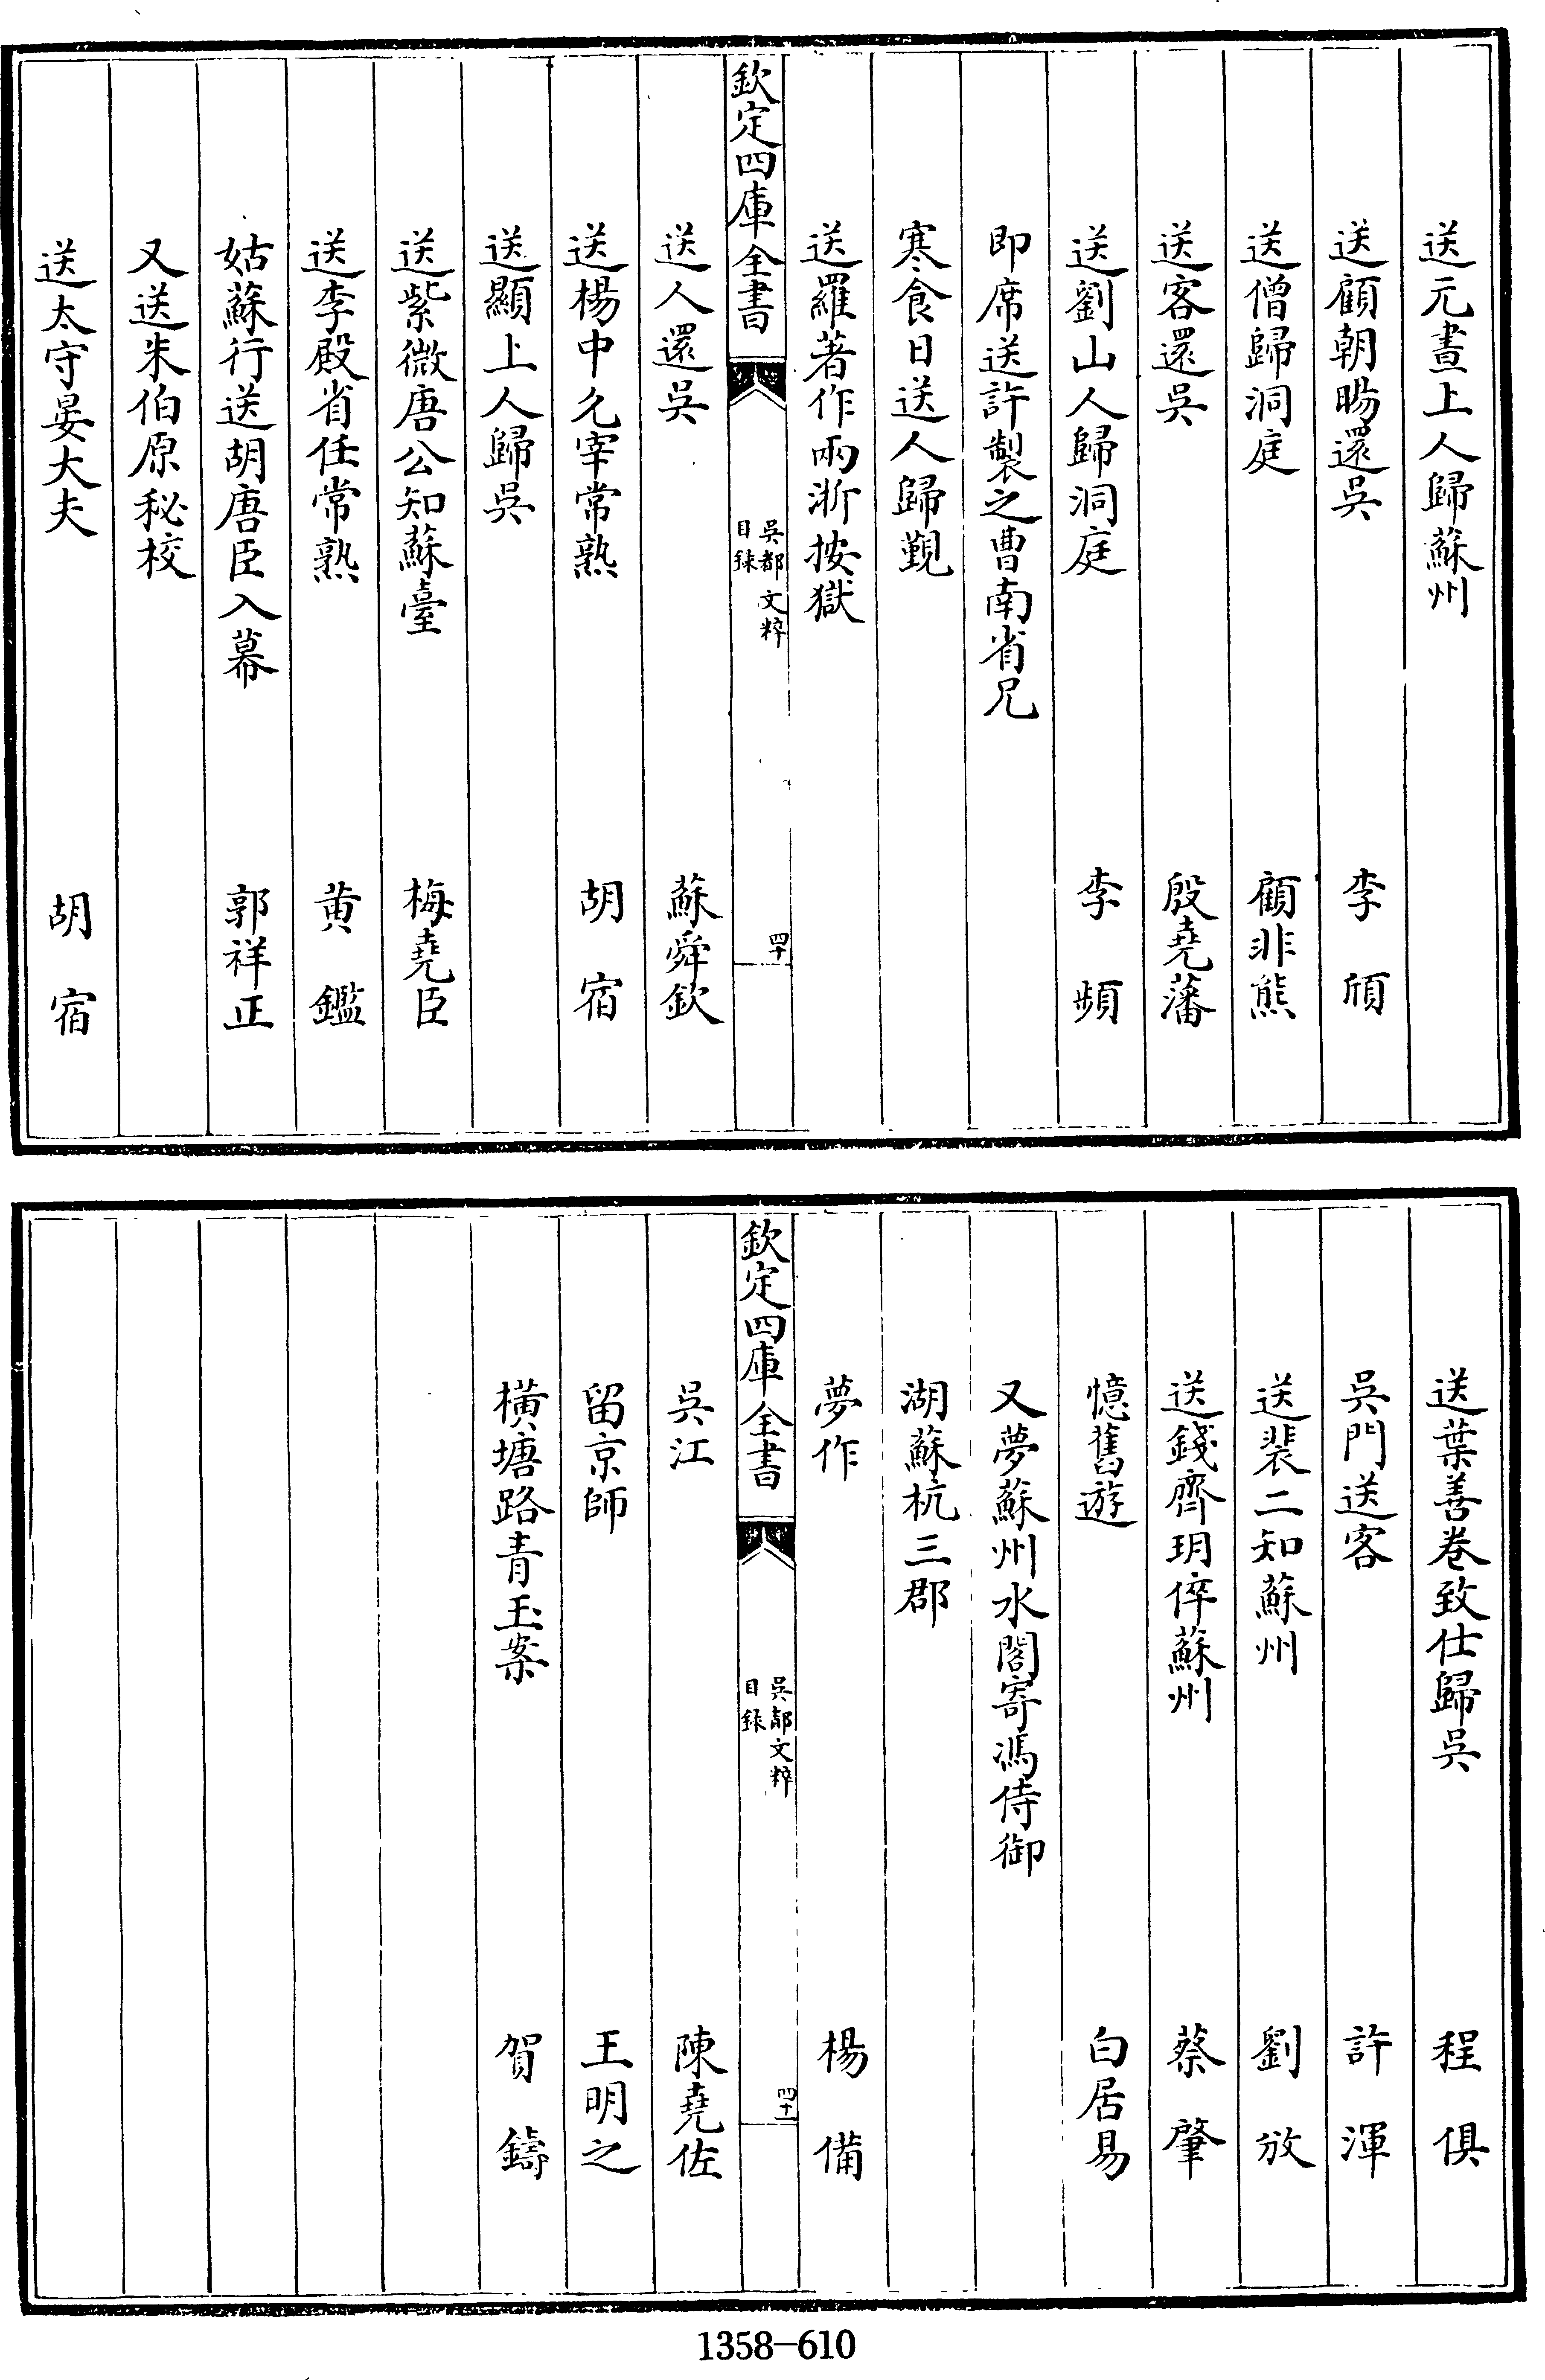 送元晝上人歸蘇州
送顧朝暘還吳　李頎
送僧歸洞庭　顧非熊
送客還吳　殷堯藩
送劉山人歸洞庭　李頻
即席送許製之曹南省兄
寒食日送人歸覲
送羅著作兩浙按獄
欽定四庫全書　吳都文粹目録　四十
送人還吳　蘇舜欽
送楊中允宰常熟　胡宿
送顯上人歸吳
送紫微唐公知蘇臺　梅堯臣
送李殿省任常熟　黄鑑
姑蘇行送胡唐臣入幕　郭祥正
又送朱伯原秘校
送太守晏大夫　胡宿
送葉善卷致仕歸吳　程俱
吳門送客　許渾
送裴二知蘇州　劉攽
送錢齊玥倅蘇州　蔡肇
憶舊遊　白居易
又夢蘇州水閣寄馮侍御
湖蘇杭三郡
夢作　楊備
欽定四庫全書　吳都文粹目録　四十一
吳江　陳堯佐
留京師　王明之
橫塘路青玉案　賀鑄
1358-610